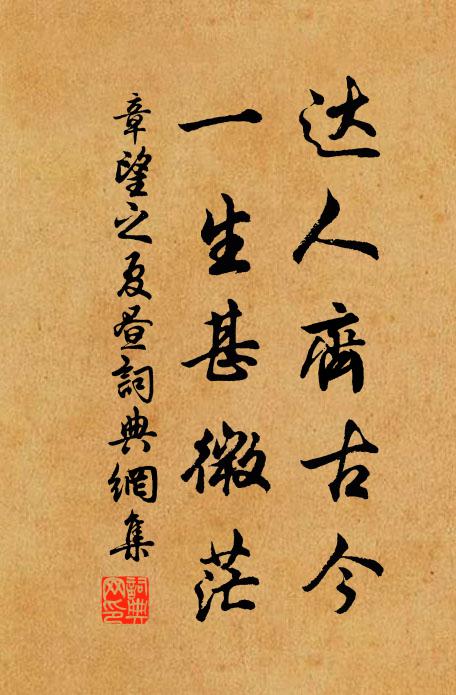 达人齊古今
一生甚微茫
章望之夏昼詞典網集
詞典网印